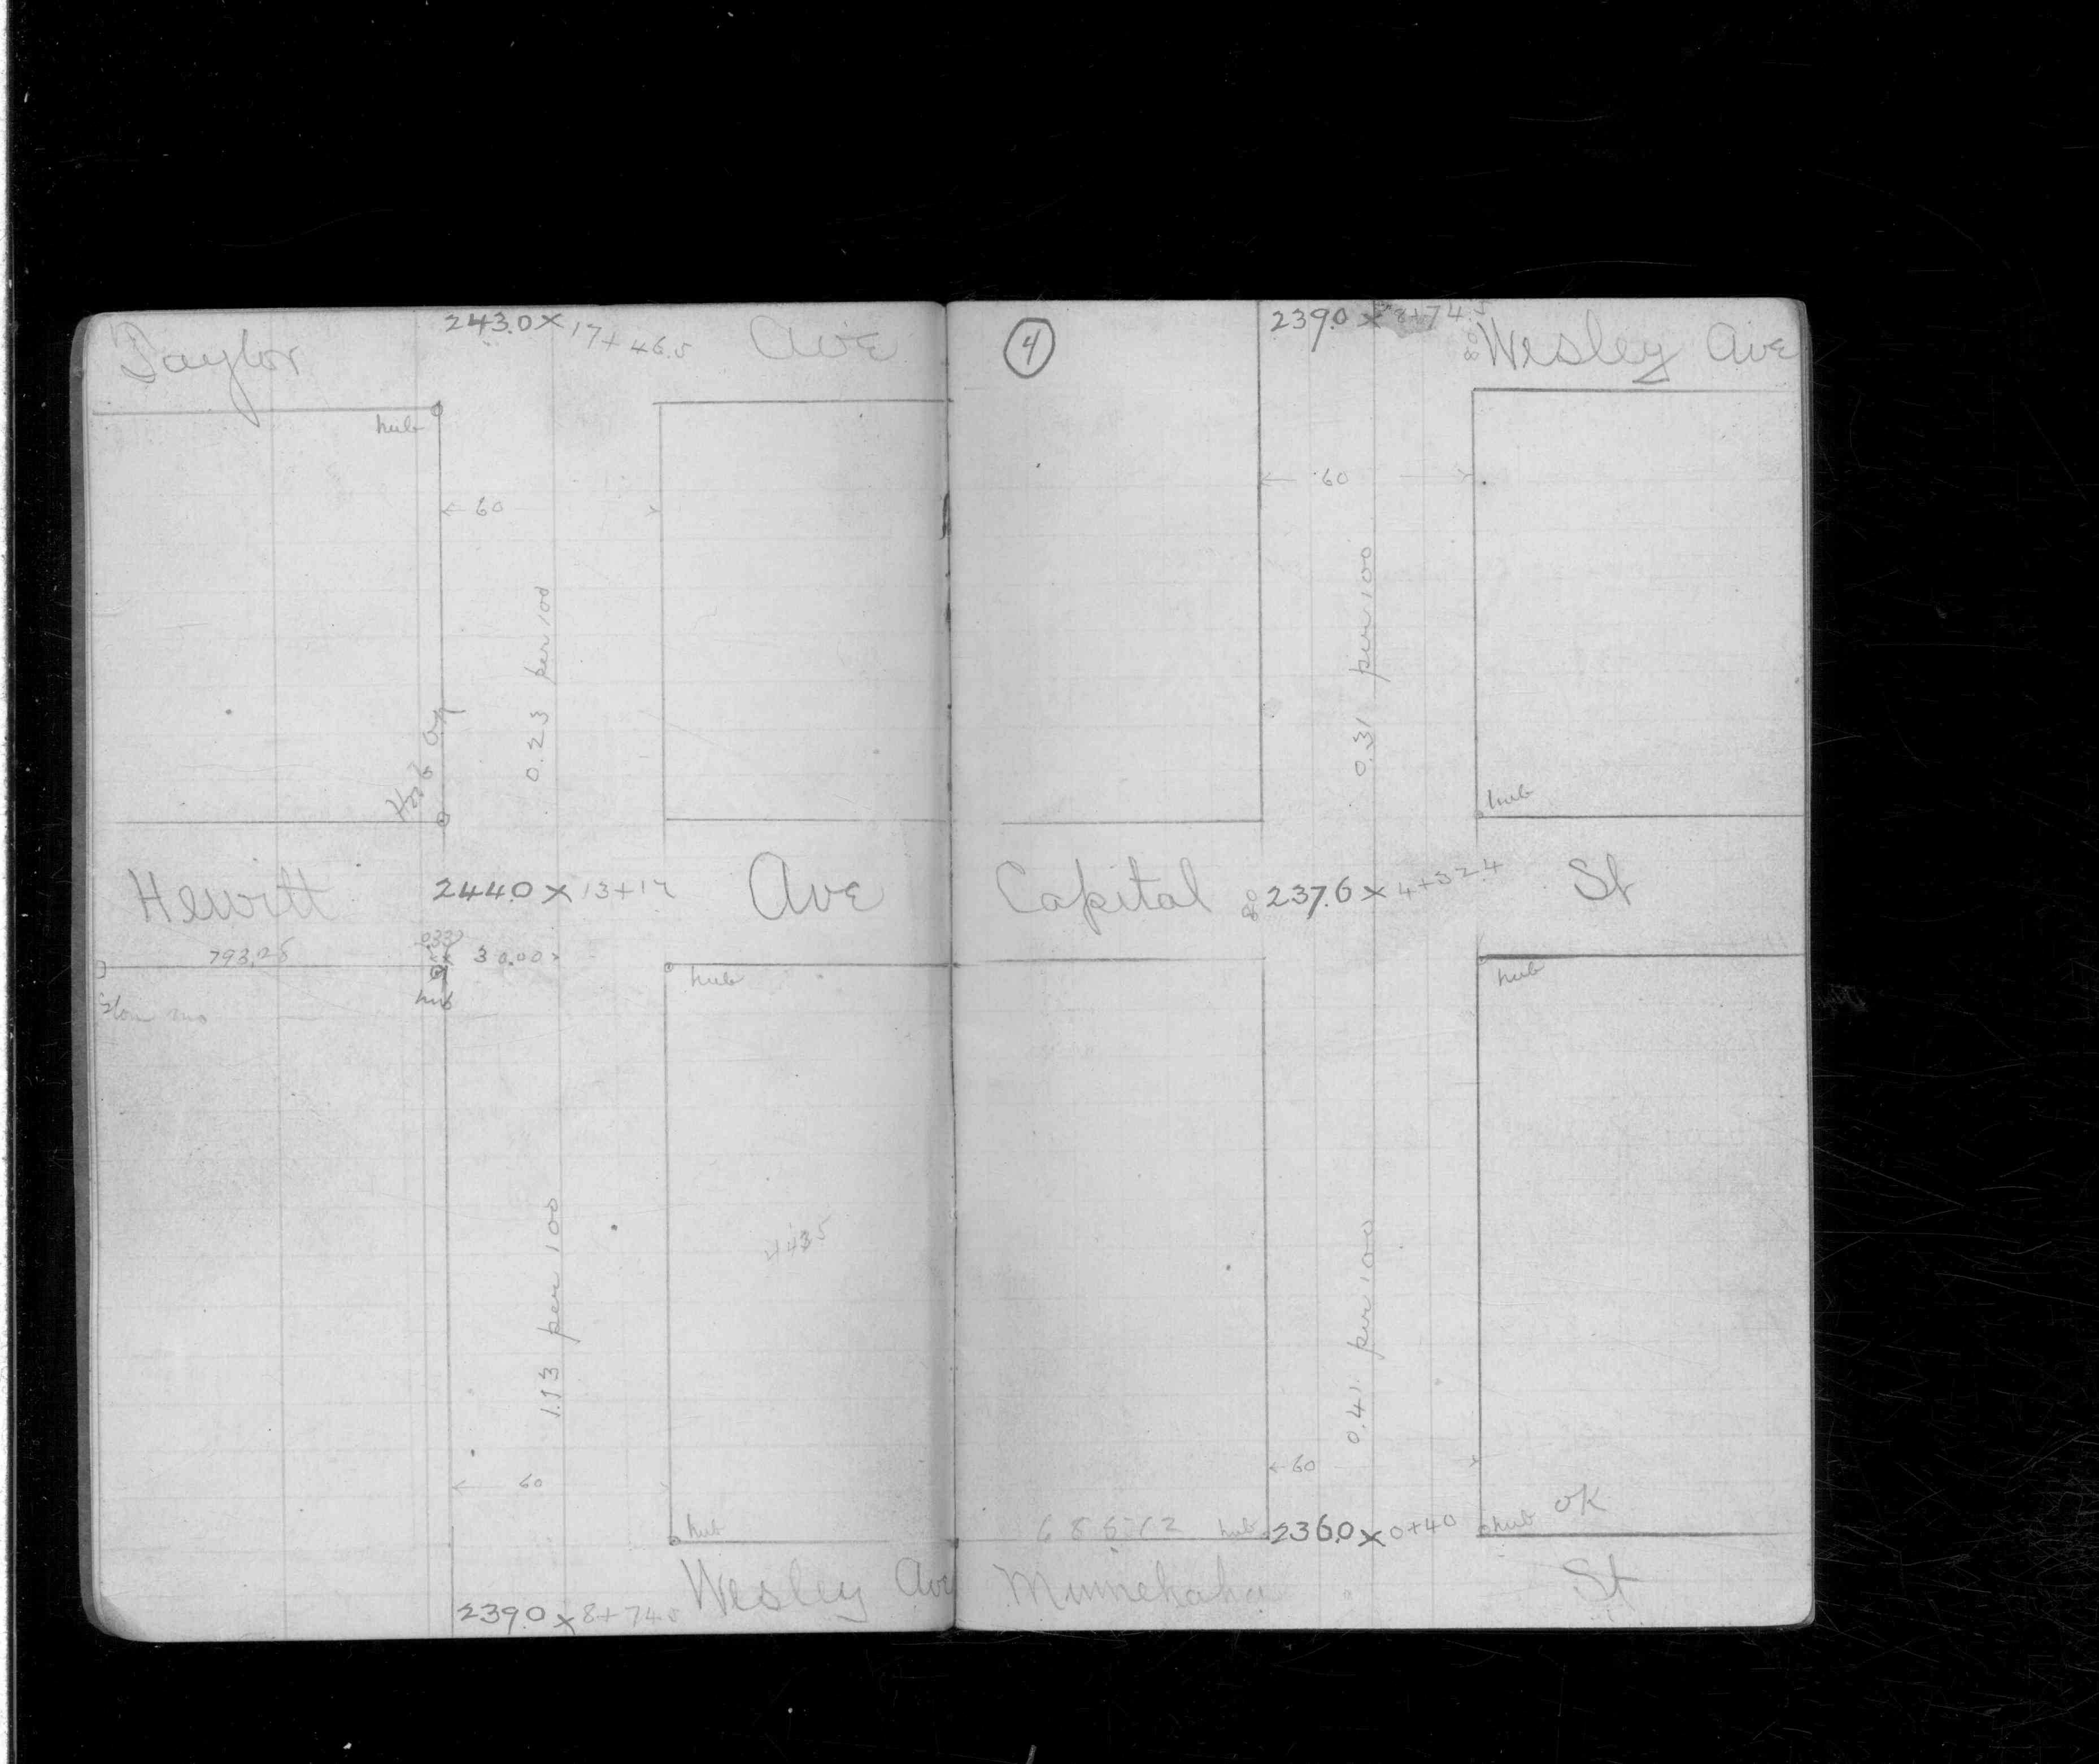 Taylor 243.0 x 17+46.5 Ave
hub
← 60 →
0.23 per 100
Hub
Hewitt 244.0 x 13+17 Ave
793.25 0.33 30.00
hub hub
1.13 per 100
4435
← 60 →
hub
Wesley Ave
239.0 x 8+74.5
4
239.0 x 8+74.5
80 Wesley Ave
← 60 →
0.31 per 100
hub
Capital 80 237.6 x 4+32.4 St
hub
0.41 per 100
← 60 →
OK
685.12 hub 236.0 x 0+40 hub
Minnehaha St